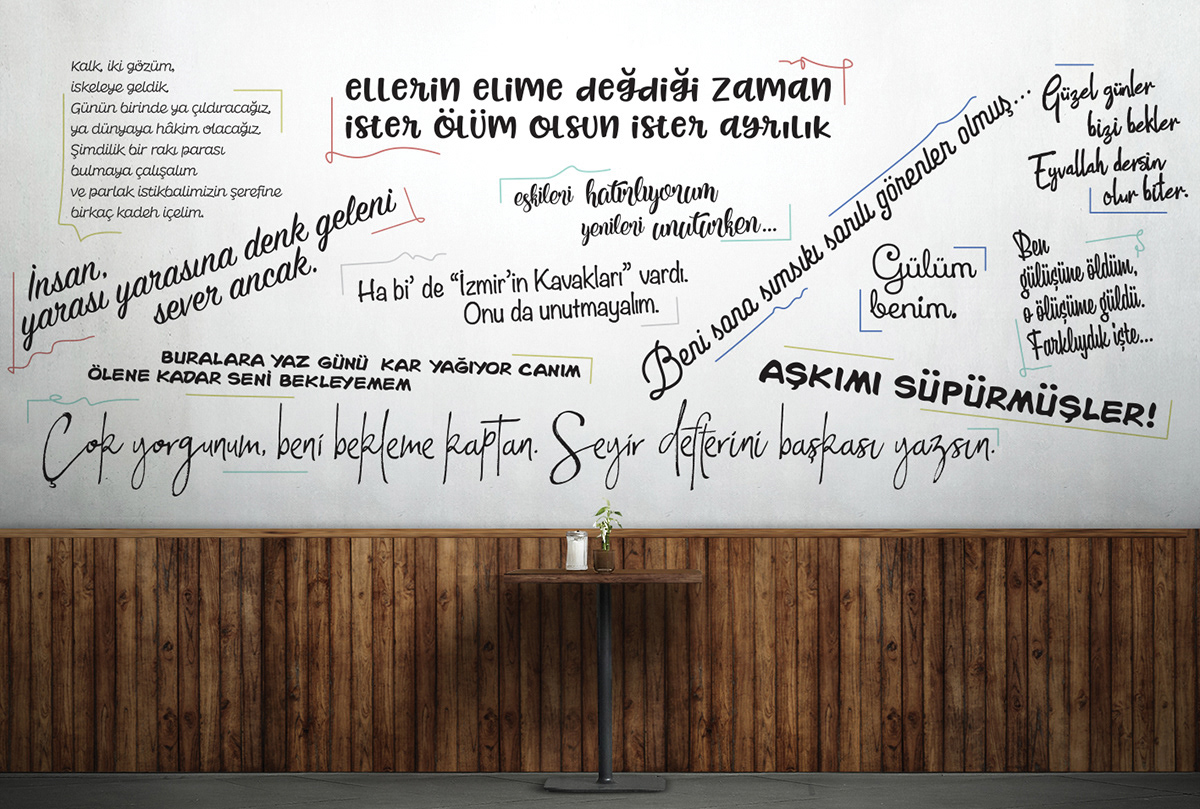 Kalk, iki gözüm,
iskeleye geldik.
Günün birinde ya çıldıracağız,
ya dünyaya hâkim olacağız,
Şimdilik bir rakı parası
bulmaya çalışalım
ve parlak istikbalimizin şerefine
birkaç kadeh içelim.
ellerin elime değdiği zaman
ister ölüm olsun ister ayrılık
Güzel günler
bizi bekler
Eyvallah dersin
olur biter.
eskileri hatırlıyorum
yenileri unuturken...
Beni sana sımsıkı sarılı görenler olmuş...
İnsan,
yarası yarasına denk geleni
sever ancak.
Ha bi' de “İzmir'in Kavakları” vardı.
Onu da unutmayalım.
Gülüm
benim.
Ben
gülüşüne öldüm,
o ölüşüme güldü.
Farklıydık işte...
BURALARA YAZ GÜNÜ KAR YAĞIYOR CANIM
ÖLENE KADAR SENİ BEKLEYEMEM
AŞKIMI SÜPÜRMÜŞLER!
Çok yorgunum, beni bekleme kaptan. Seyir defterini başkası yazsın.